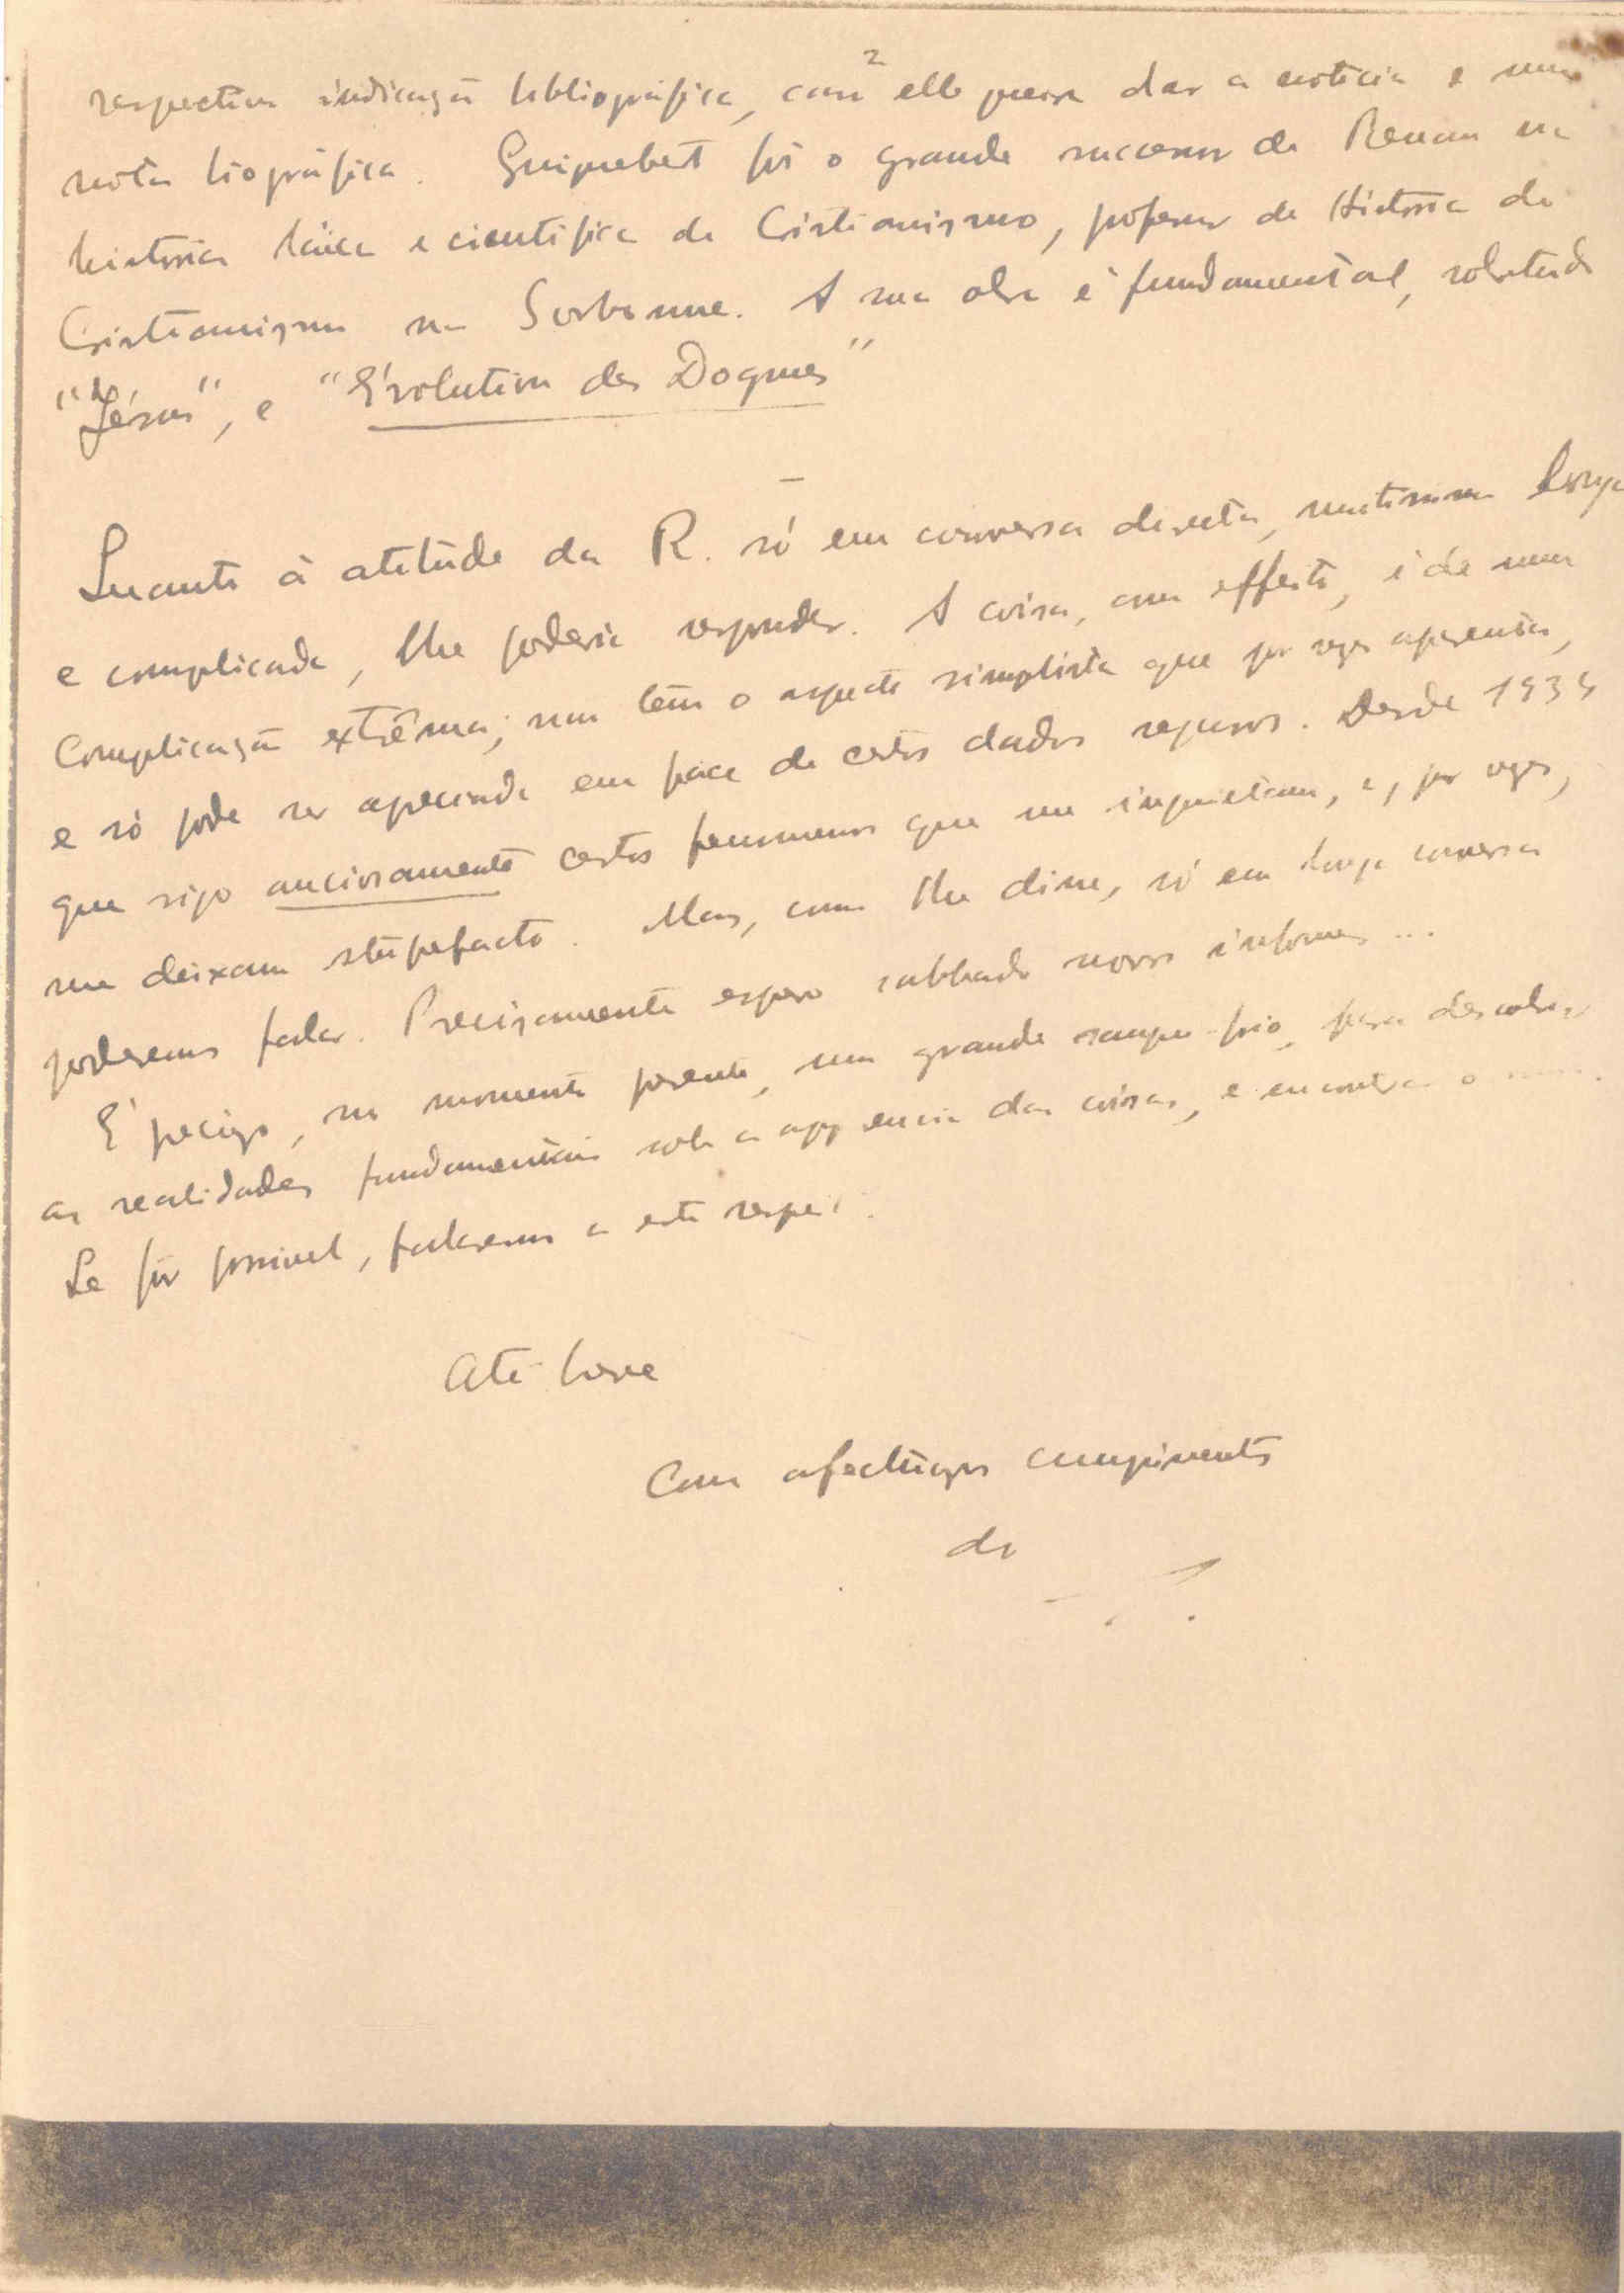 2
respectiva indicação bibliográfica, caso elle queira dar a notícia e uma
nota biográfica. Guignebert foi o grande sucessor de Renan na
história láica e científica do Cristianismo, professor de História do
Cristianismo na Sorbonne. A sua obra é fundamental, sobretudo
"Jésus", e "Évolution des Dogmes"
Quanto à atitude da R. só em conversa directa, muitissimo longa
e complicada, lhe poderia responder. A coisa, com effeito, é de uma
complicação extrêma; não tem o aspecto simplista que por vezes aparenta,
e só pode ser apreciada em face de certos dados seguros. Desde 1939
que sigo anciosamente certos fenomenos que me inquietam, e, por vezes,
me deixam stupefacto. Mas, como lhe disse, só em longa conversa
poderemos falar. Precisamente espero sabbado novos informes ...
É preciso, no momento presente, um grande sangue-frio, para descobrir
as realidades fundamentais sob a apparencia das coisas, e encontrar o
Se fôr possivel, falaremos a este respeito.
Até breve
Com afectuosos cumprimentos
do